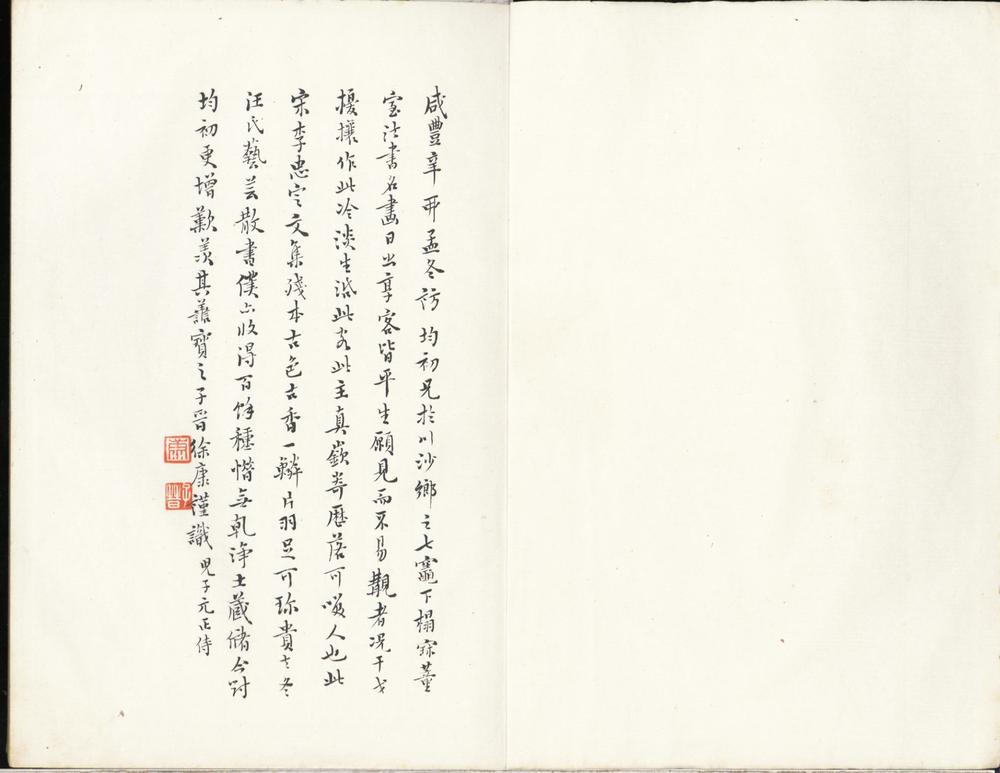 咸豐辛酉孟冬訪均初兄於川沙鄉之七竈下榻寐董
室法書名畫日出享客皆平生願見而不易觀者况干戈
擾攘作此冷淡生活此客此主真嶔崎歷落可笑人也此
宋李忠定文集殘本古色古香一鱗片羽足可珍貴去冬
汪氏藝芸散書僕亦收得百餘種惜無乾淨土藏儲今對
均初更增歎羨其善寶之子晉徐康謹識兒子元正侍
康
子晉